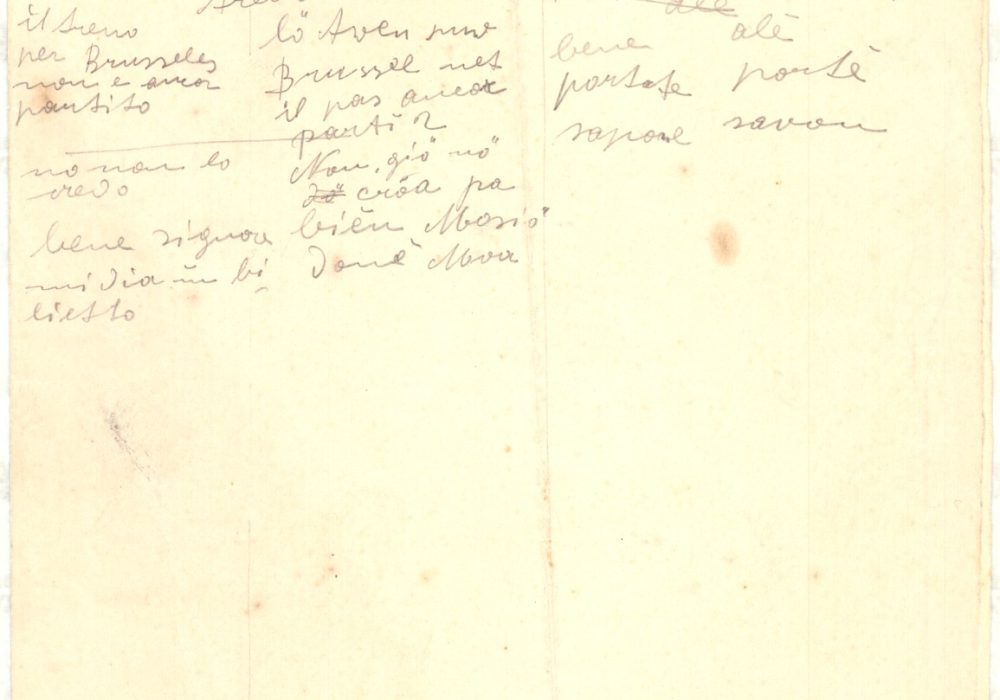 il treno
per Brusseles
non e ancor
partito
no non lo
credo
bene signora
mi dia un bi
lietto
lö Aven pur
Brussel net
il pas ancor
parti?
Non, giö nö
cröa pa
bién Mosiö
Doné Moa
alé
bene alé
portate porté
sapone savon